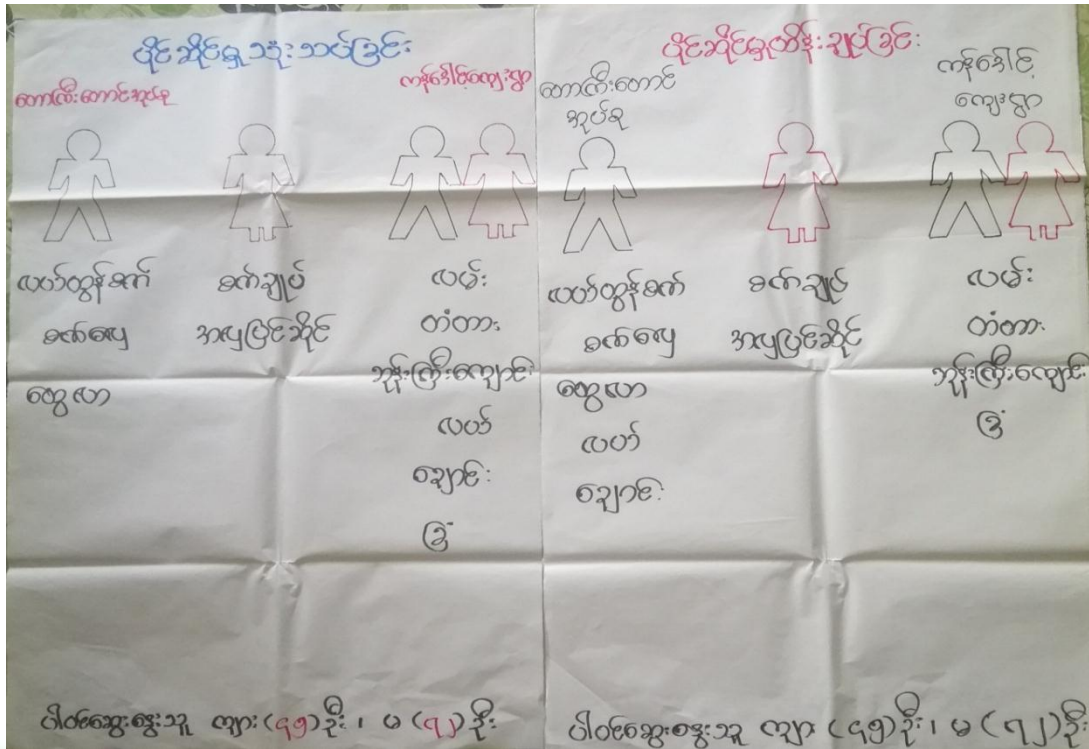 ပိုင်ဆိုင်မှု သုံးသပ်ခြင်း
တောကြီးတောင်အုပ်စု
ကန်ဒေါင့်ကျေးရွာ
လယ်ထွန်စက်
စက်လှေ
ထွေလာ
စက်ချုပ်
အလှပြင်ဆိုင်
လမ်း
တံတား
ဘုန်းကြီးကျောင်း
လယ်
ချောင်း
ခြံ
ပါဝင်ဆွေးနွေးသူ ကျား (၄၅) ဦး ၊ မ (၇၂) ဦး
ပိုင်ဆိုင်မှုထိန်းချုပ်ခြင်း
တောကြီးတောင်
အုပ်စု
ကန်ဒေါင့်
ကျေးရွာ
လယ်ထွန်စက်
စက်လှေ
ထွေလာ
လယ်
ချောင်း
စက်ချုပ်
အလှပြင်ဆိုင်
လမ်း
တံတား
ဘုန်းကြီးကျောင်း
ခြံ
ပါဝင်ဆွေးနွေးသူ ကျား (၄၅) ဦး ၊ မ (၇၂) ဦး